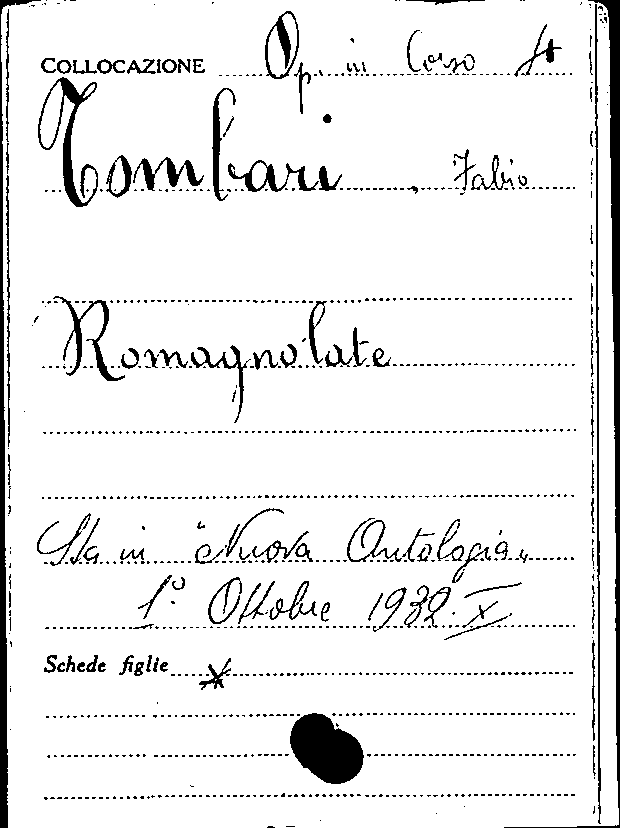 COLLOCAZIONE Op. in Corso
Tombari, Fabio
Romagnolate
Sta in "Nuova Antologia„
1° Ottobre 1932. X
Schede figlie X